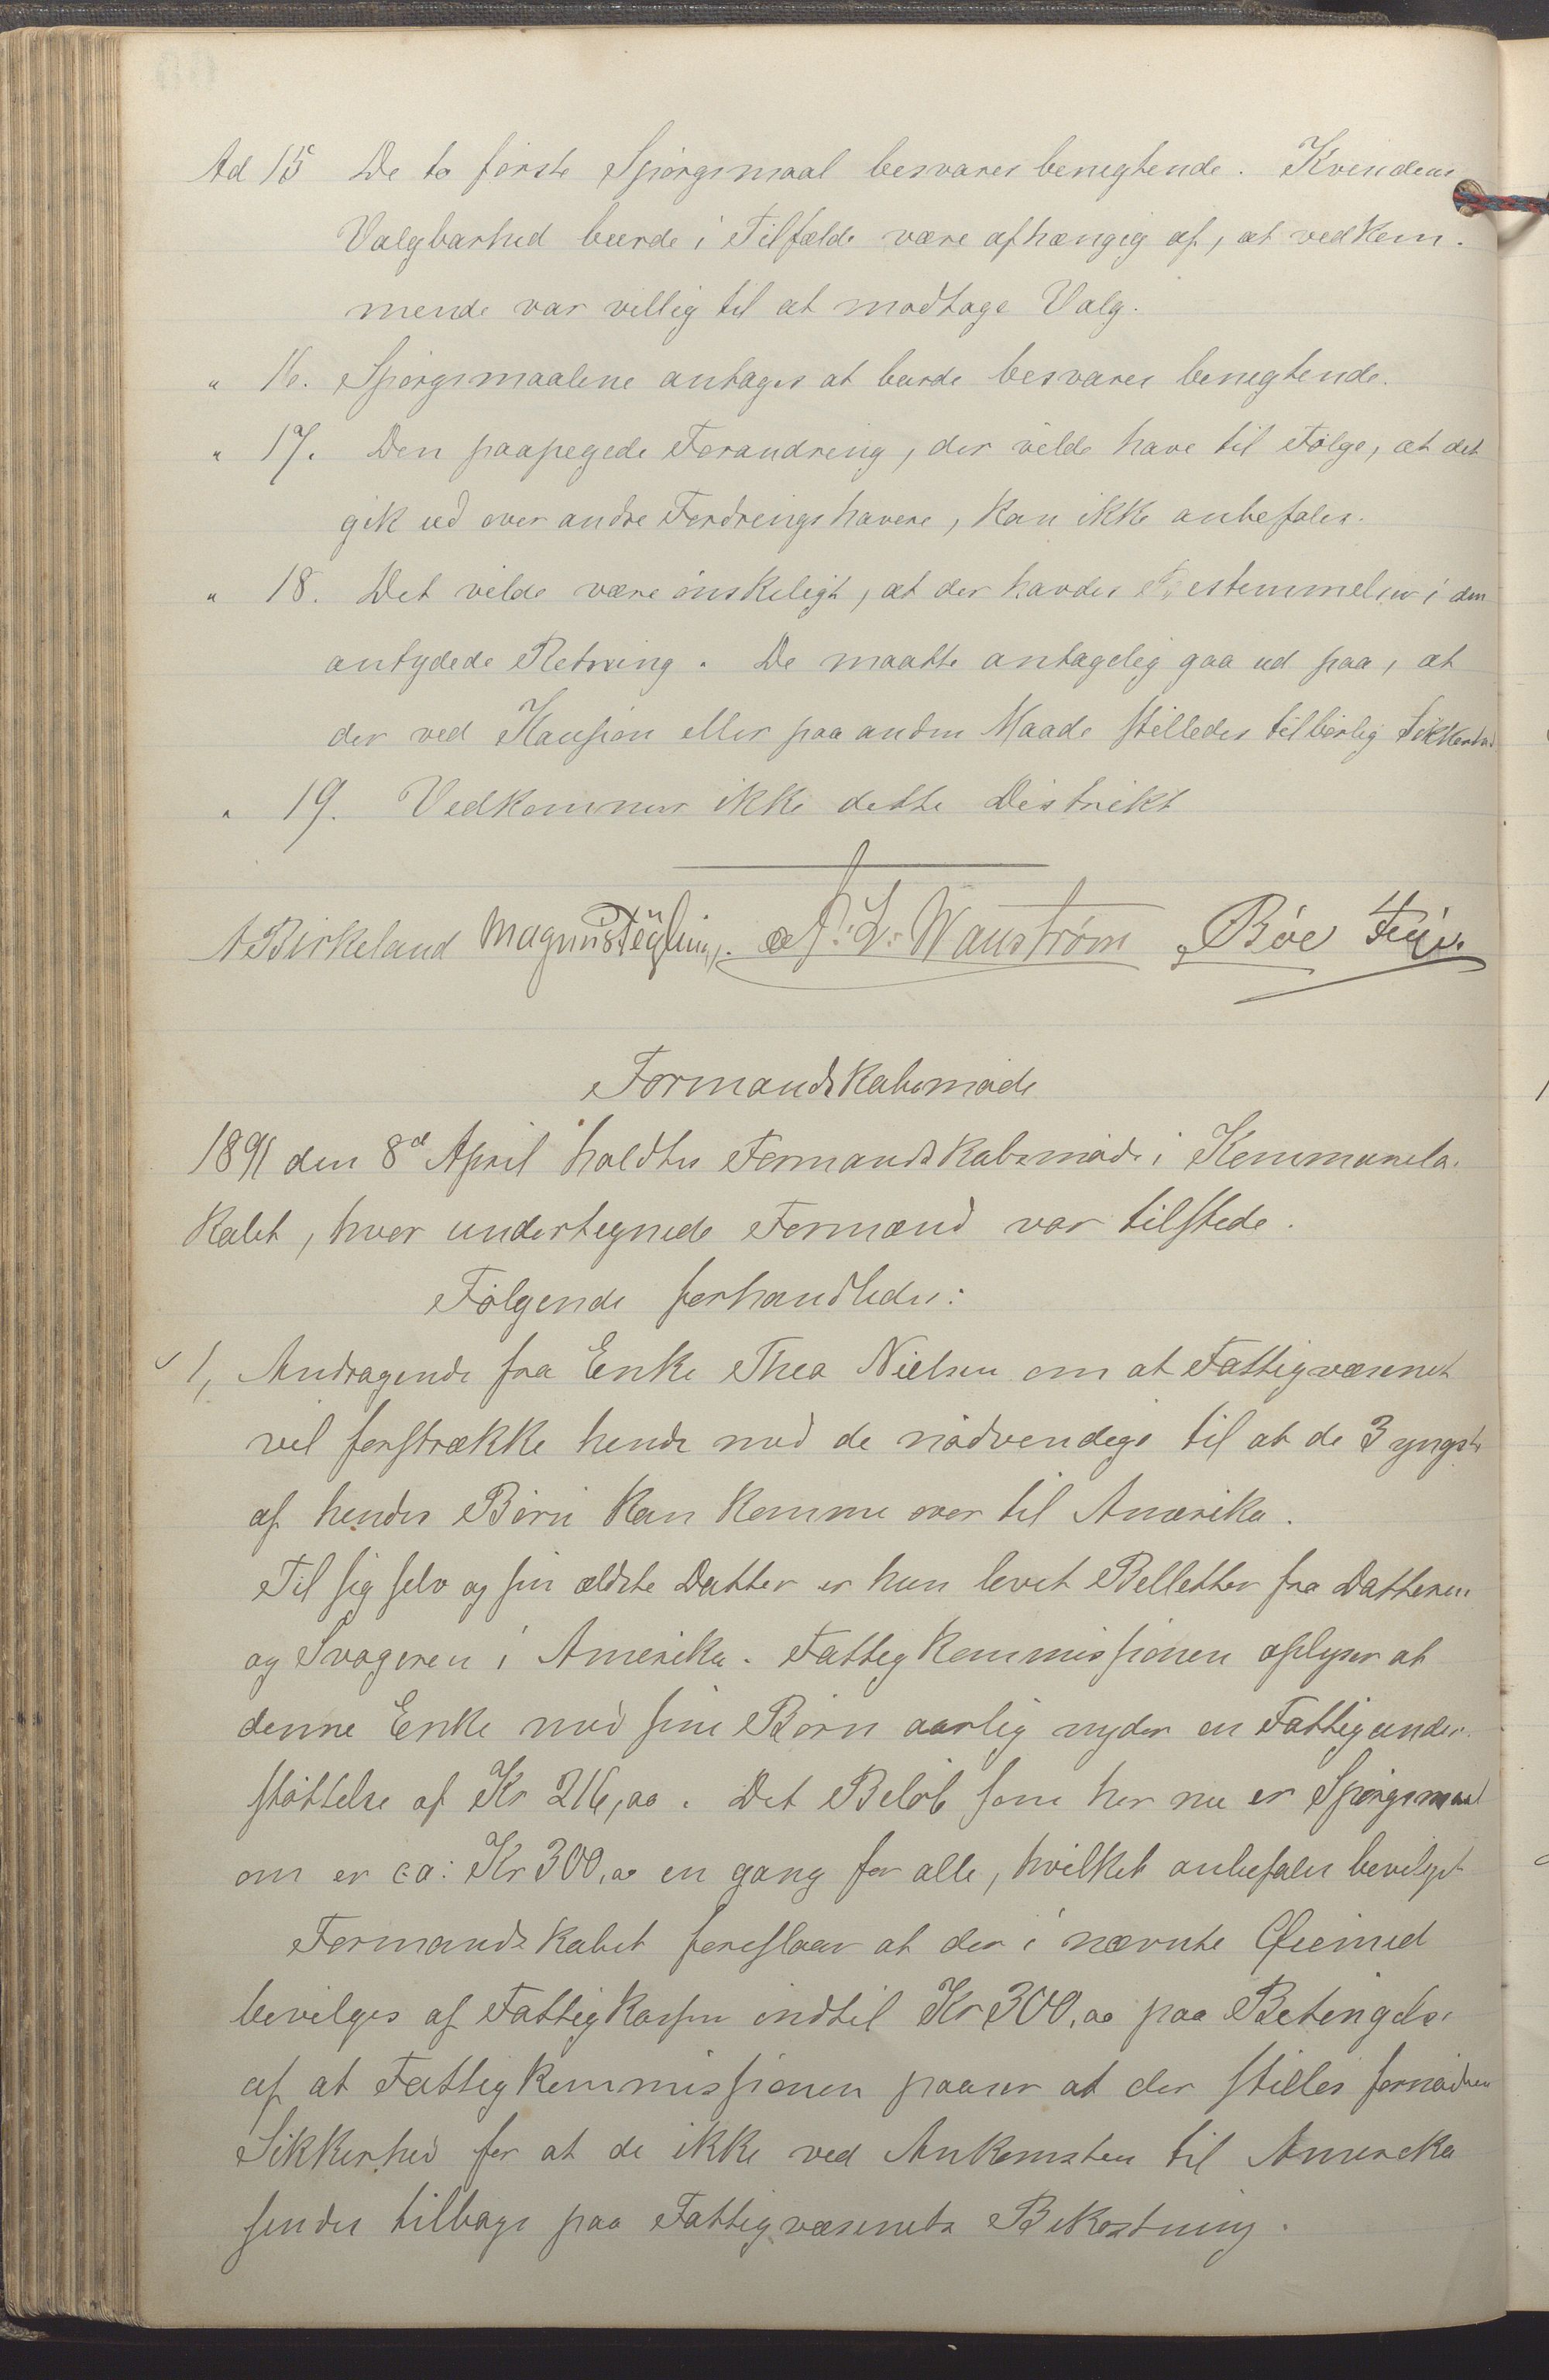 Ad 15 De to første Spørgsmaal besvares benegtende. Kvindens
Valgbarhed burde i Tilfælde være afhængig af, at vedkom-
mende var villig til at modtage Valg.
" 16. Spørgsmaalene antages at burde besvares benegtende.
" 17. Den paapegede Forandring, der vilde have til Følge, at det
gik ud over andre Fordringshavere, kan ikke anbefales.
" 18. Det vilde være ønskeligt, at der havdes Bestemmelser i den
antydede Retning. De maatte antagelig gaa ud paa, at
der ved Kaution eller paa anden Maade stilledes tilbørlig Sikkerhed
" 19. Vedkommer ikke dette Distrikt
A Birkeland Magnus A. L. Wanstrøm Bøe
Formandskabsmøde
1891 den 8d April holdtes Formandskabsmøde i Kommunelo-
kalet, hvor undertegnede Formænd var tilstede.
Følgende forhandledes:
1, Andragende fra Enke Thea Nielsen om at Fattigvæsenet
vil forstrække hende med de nødvendige til at de 3 yngste
af hendes Børn kan komme over til Amerika.
Til sig selv og sin ældste Datter er hun lovet Billetter fra Datteren
og Svogeren i Amerika. Fattigkommissionen oplyser at
denne Enke med sine Børn aarlig nyder en Fattigunder-
støttelse af Kr 216,00. Det Beløb som her nu er Spørgsmaal
om er ca: Kr 300,00 en gang for alle, hvilket anbefales bevilget
Formandskabet foreslaar at der i nævnte Øiemed
bevilges af Fattigkassen indtil Kr 300,00 paa Betingelse
af at Fattigkommissionen paaser at der stilles fornøden
Sikkerhed for at de ikke ved Ankomsten til Amerika
sendes tilbage paa Fattigvæsenets Bekostning.